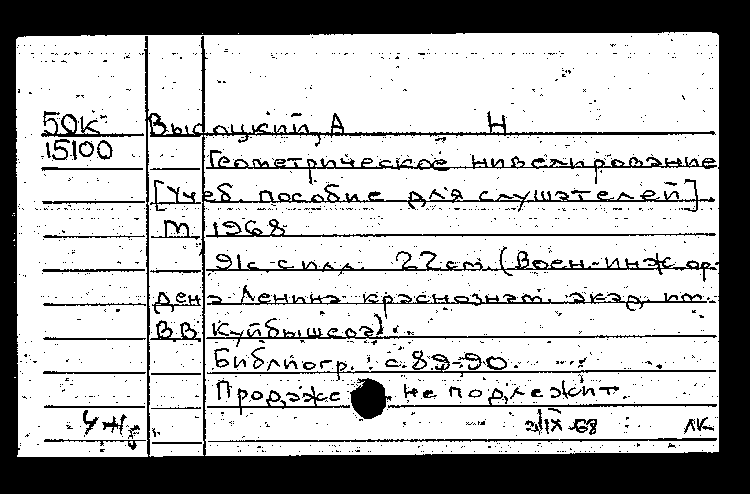 50К Высоцкий, А Н
15100 Геометрическое нивелирование
[Учеб. пособие для слушателей].
М 1968
91с. с илл. 22см. (Воен.-инж. ор-
дена Ленина краснознам. акад. им.
В.В. Куйбышева).
Библиогр.: с. 89-90.
Продаже не подлежит.
IX-68 ЛК